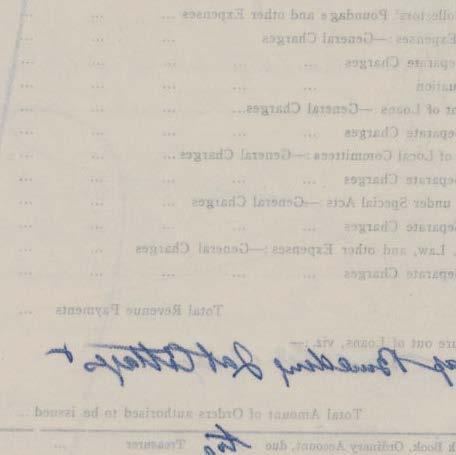 ollectors' Poundage and other Expenses ... ... ...
Expenses:—General Charges ... ... ...
Separate Charges ... ... ... ...
uation ... ... ... ...
nt of Loans:—General Charges... ... ... ...
Separate Charges ... ... ... ...
of Local Committees:—General Charges ... ... ...
Separate Charges ... ... ... ...
under Special Acts:—General Charges ... ... ...
Separate Charges ... ... ... ...
, Law, and other Expenses:—General Charges ... ... ...
Separate Charges ... ... ... ...
Total Revenue Payments ...
ure out of Loans, viz.:—
Building Lab Cottages +
Total Amount of Orders authorised to be issued ...
k Book, Ordinary Account, due to Treasurer ...